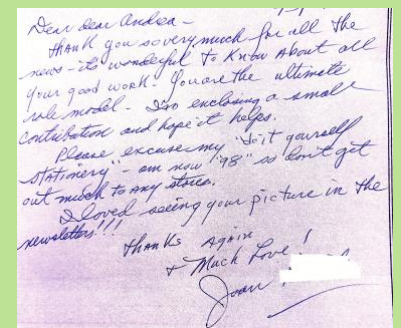 Dear dear Andrea -
Thank you so very much for all the
news - it's wonderful to know about all
your good work - You are the ultimate
role model - I'm enclosing a small
contribution and hope it helps.
Please excuse my "do it yourself
stationery" - am now "98" so don't get
out much to any stores.
I loved seeing your picture in the
newsletter!!!
Thanks Again
+ Much Love!
Joan